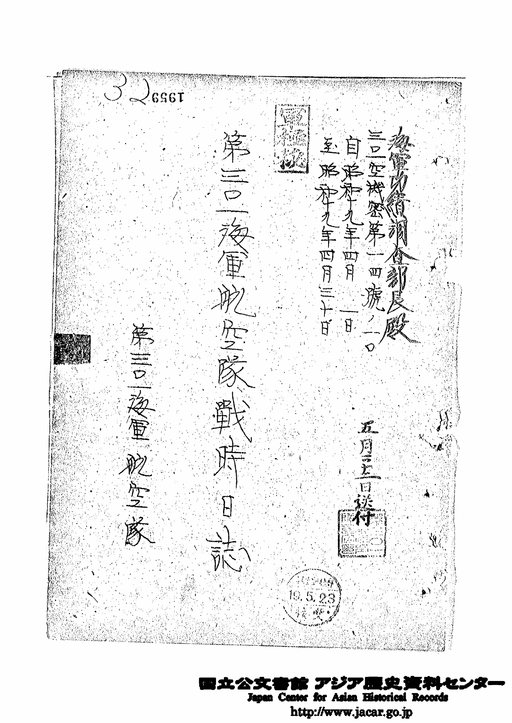 海軍功績調査部長殿
三〇一空機密第一四號ノ一〇
自昭和十九年四月一日
至昭和十九年四月三十日
軍極秘
第三〇一海軍航空隊戰時日誌
第三〇一海軍航空隊
送付
19.5.23
32
1959
国立公文書館 アジア歴史資料センター
Japan Center for Asian Historical Records
http://www.jacar.go.jp